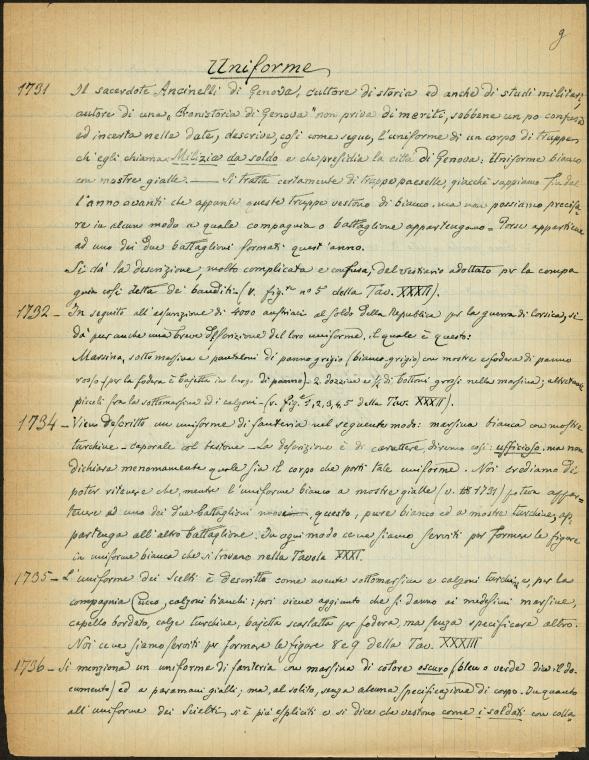 9
Uniforme
1731 Il sacerdote Ancinelli di Genova, cultore di storia ed anche di studi militari,
autore di una "Cronistoria di Genova" non priva di meriti, sebbene un po' confusa
ed incerta nelle date, descrive, così come segue, l'uniforme di un corpo di truppe,
ch'egli chiama Milizia da soldo e che presidia la città di Genova: Uniforme bianco
con mostre gialle. — Si tratta certamente di truppe paeselle, giacchè sappiamo fin dal
l'anno avanti che appunto queste truppe vestono di bianco, ma non possiamo precisa-
re in alcun modo a quale compagnia o battaglione appartengano = Forse appartiene
ad uno dei due battaglioni formati quest'anno.
Si dà la descrizione, molto complicata e confusa, del vestiario adottato per la compa
gnia così detta dei banditi (v. fig.re n° 5 della Tav. XXXII).
1732 – In seguito all'assunzione di 4000 austriaci al soldo della Repubblica per la guerra di Corsica, si
dà pur anche una breve descrizione del loro uniforme, il quale è questo:
Marsina, sotto marsina e pantaloni di panno grigio (bianco grigio) con mostre e fodera di panno
rosso (per la fodera è bajetta in luogo di panno) 2 dozzine e ½ di bottoni grossi nella marsina; altrettanti
piccoli fra la sottomarsina ed i calzoni – (v. fig.e 1, 2, 3, 4, 5 della Tav. XXXII).
1734 – Vien descritto un uniforme di fanteria nel seguente modo: marsina bianca con mostre
turchine – caporale col bastone – La descrizione è di carattere, diremo così: ufficioso, ma non
dichiara menomamente quale sia il corpo che porti tale uniforme. Noi crediamo di
poter ritenere che, mentre l'uniforme bianco a mostre gialle (v. 1731) poteva appar=
tenere ad uno dei due battaglioni, questo, pure bianco ed a mostre turchine, ap=
partenga all'altro battaglione. In ogni modo ce ne siamo serviti per formare le figure
in uniforme bianca che si trovano nella Tavola XXXI.
1735 – L'uniforme dei Scelti è descritta come avente sottomarsina e calzoni turchine, per la
compagnia Cucco, calzoni bianchi; poi viene aggiunto che si danno ai medesimi marsine,
capello bordato, calze turchine, bajetta scarlatta per fodera, ma senza specificare altro.
Noi ce ne siamo serviti per formare le figure 8 e 9 della Tav. XXXIII
1736 – Si menziona un uniforme di fanteria con marsina di colore oscuro (bleu o verde dice il do-
cumento) ed a paramani gialli, ma, al solito, senza alcuna specificazione di corpo. In quanto
all'uniforme dei Scielti, si è più espliciti e si dice che vestono come i soldati con colla